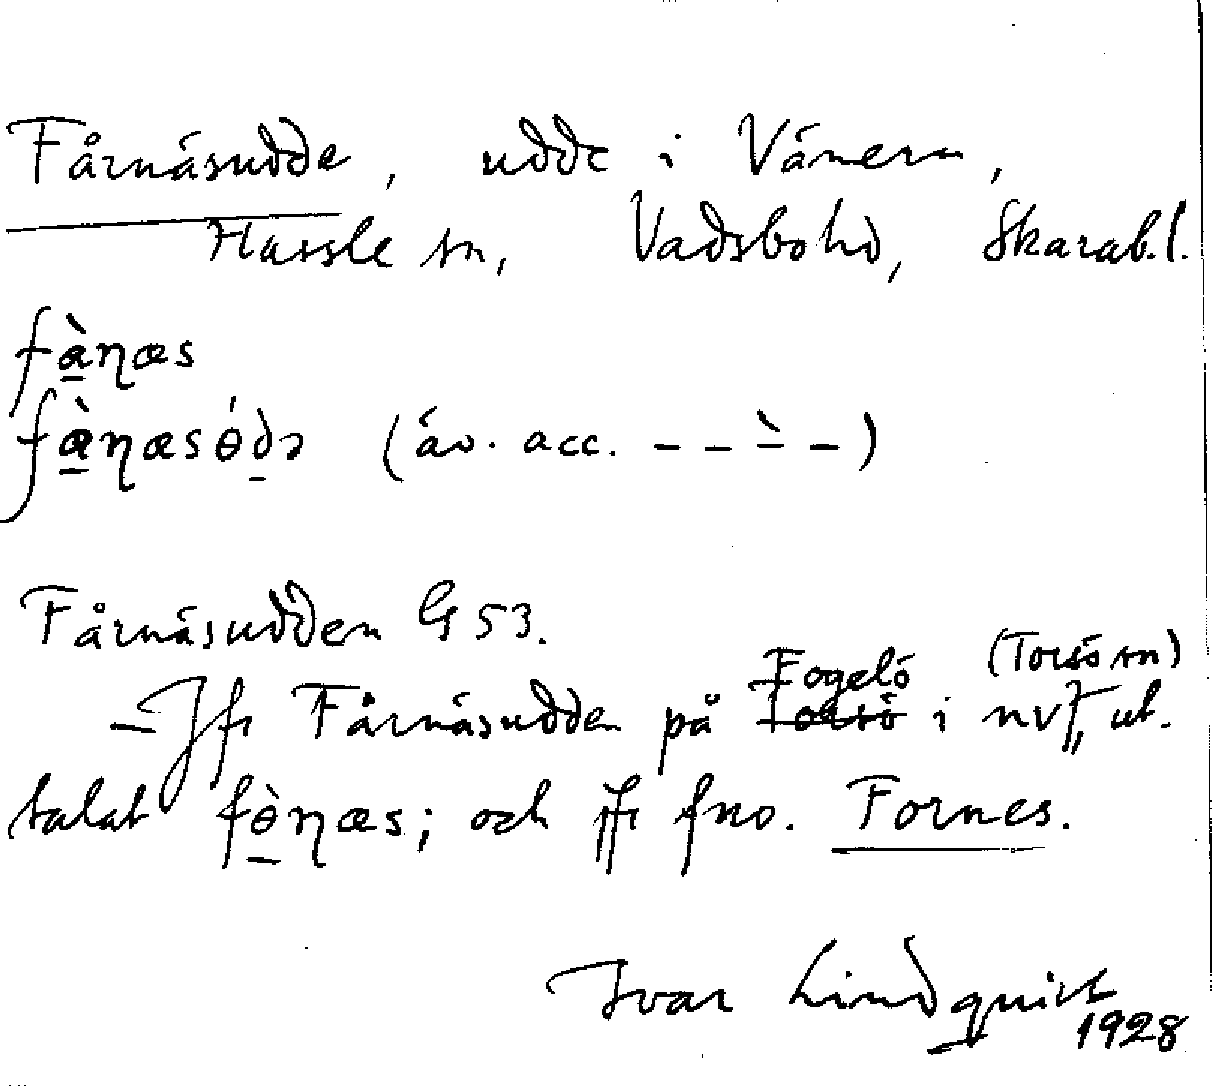 Fårnäsudde, udde i Vänern,
Hassle sn, Vadsbo hd, Skarab.l.
fànæs
fànæsódə (äv. acc. – – ̀– –)
Fårnäsudden G 53.
– Jfr Fårnäsudden på Fogelö i nv, (Torsö sn) ut-
talat fònæs; och jfr fno. Fornes.
Ivar Lindquist
1928